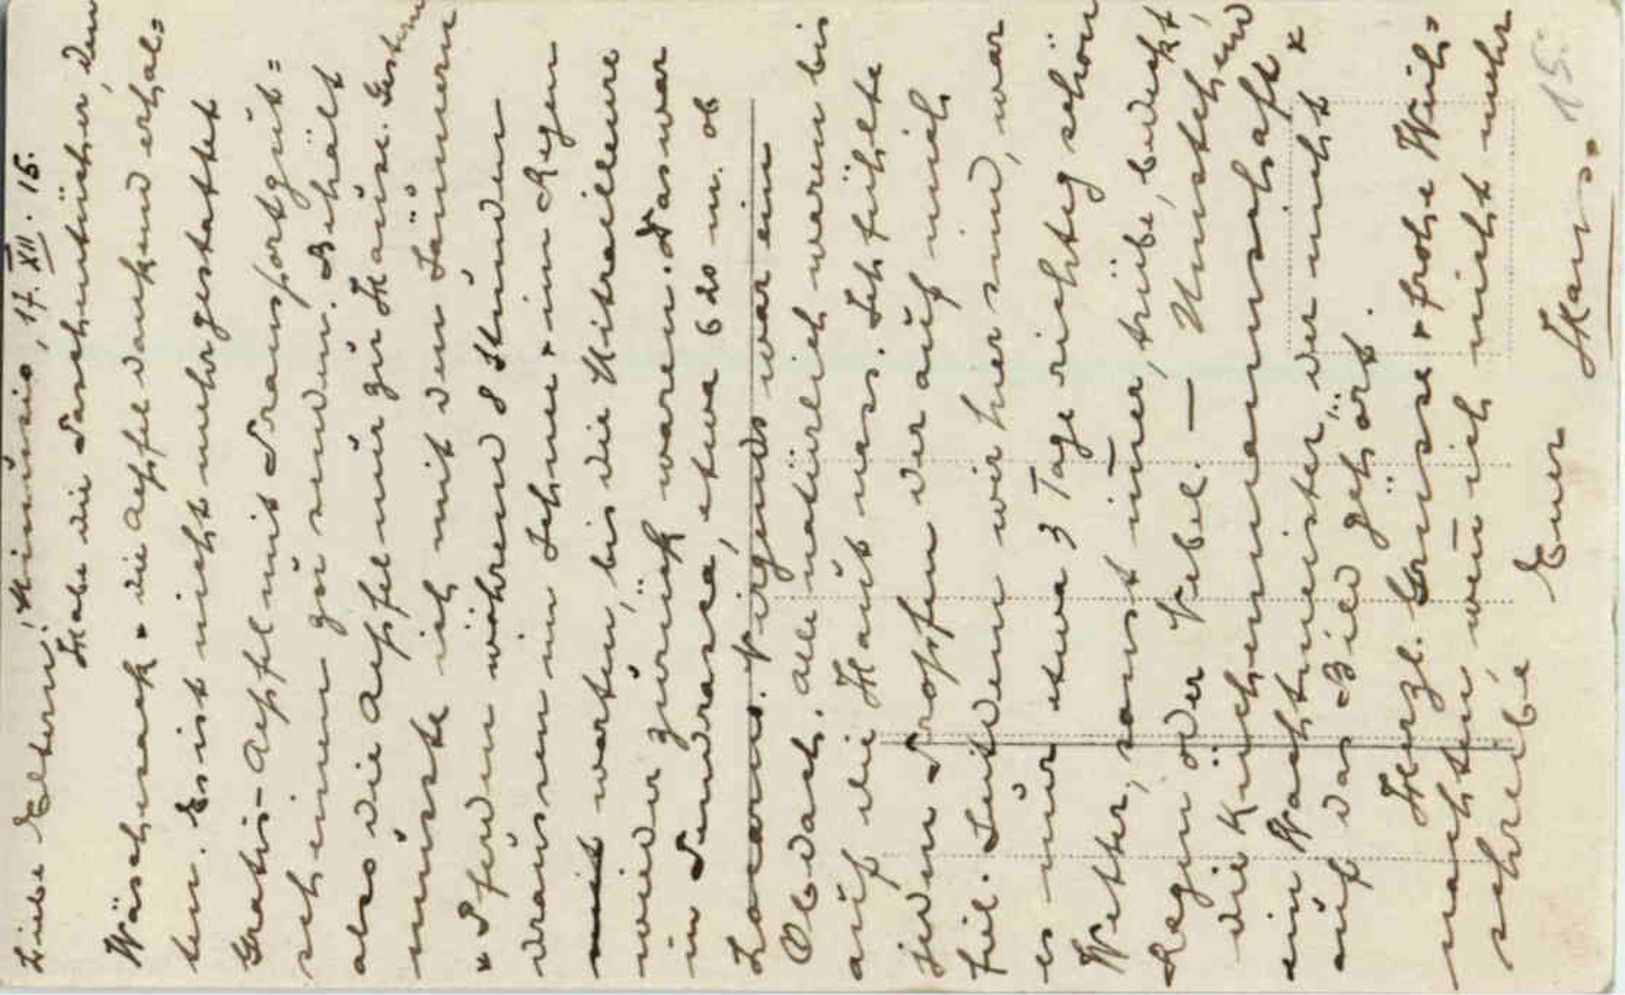 Liebe Eltern!, Minusio, 17. XII. 15.
Habe die Taschentücher, den
Wäschesack + die Äpfel dankend erhal=
ten. Es ist nicht mehr gestattet
Gratis-Äpfel mit Transportgut=
scheinen zu senden. Behält
also die Äpfel nur zu Hause. Gestern
musste ich mit den Säumern
+ Pferden während 8 Stunden
draussen im Schnee + im Regen
warten, bis die Mitrailleure
wieder zurück waren. Das war
in Indrasca, etwa 620 m. ob
Locarno. Nirgends war ein
Obdach. Alle natürlich waren bis
auf die Haut nass. Ich fühlte
jeden Tropfen der auf mich
fiel. Seitdem wir hier sind, war
es nur etwa 3 Tage richtig schön
Wetter, sonst im̄er, trübe, bedeckt,
Regen oder Nebel. — Umstehend
die Küchenmannschaft +
ein Wachtmeister, der nicht
auf das Bild gehört.
Herzl. Grüsse + frohe Weih=
nachten, wen̄ ich nicht mehr
schreibe
Euer Hans.
15.